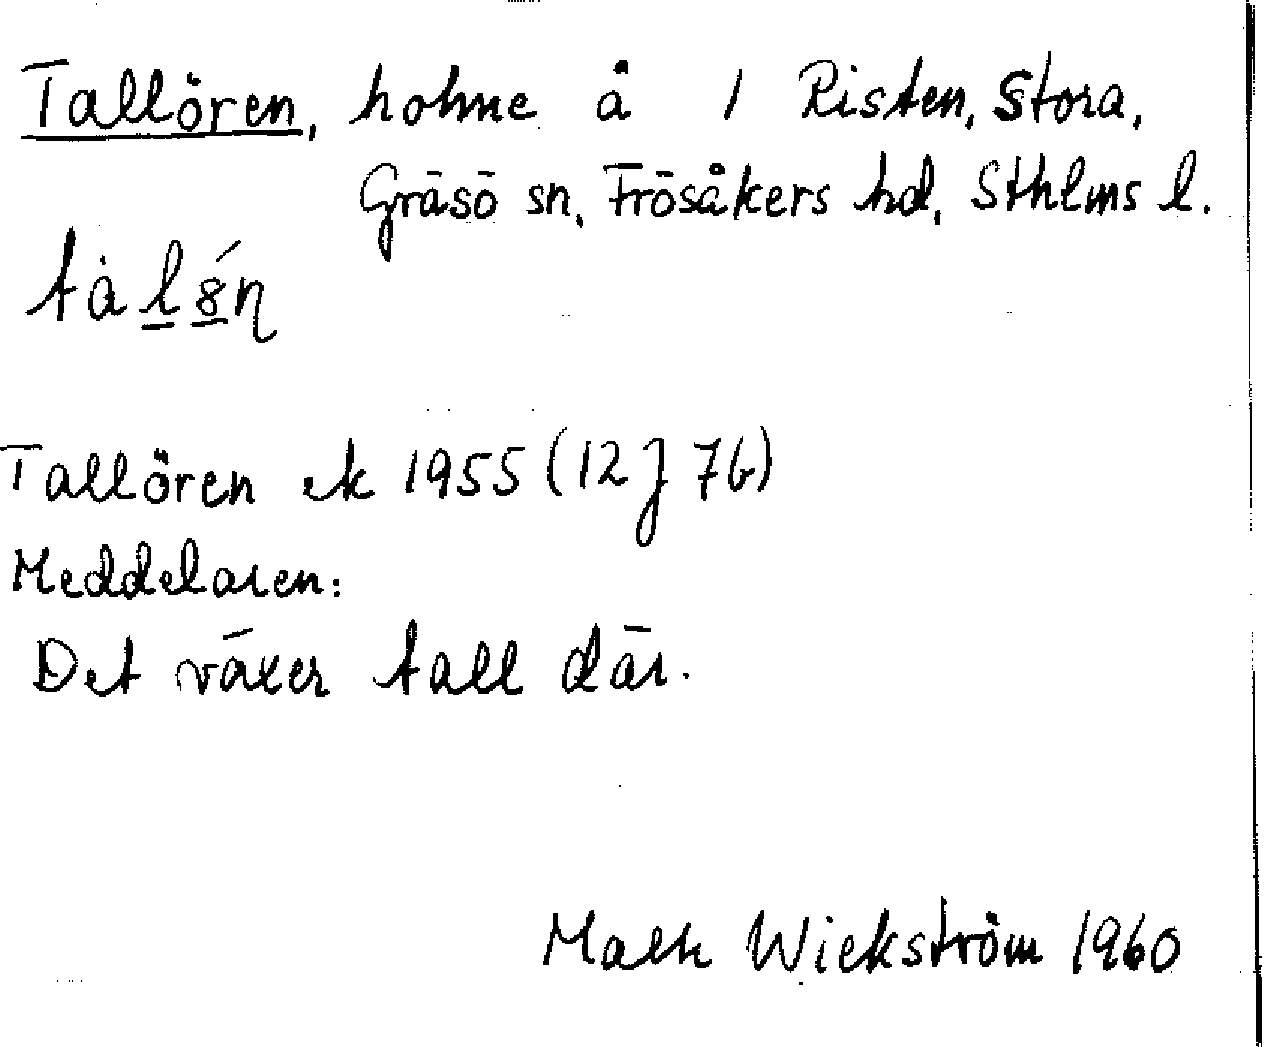 Tallören, holme å 1 Risten, Stora,
Gräsö sn, Frösåkers hd, Sthlms l.
Tallören ek 1955 (12J 7b)
Meddelaren:
Det växer tall där.
Wickström 1960